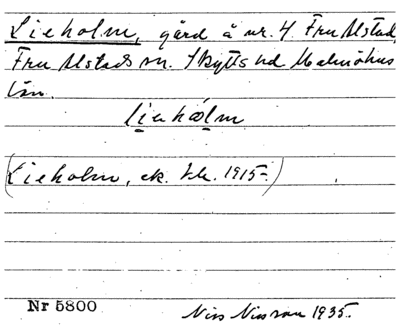 Lieholm, gård å nr. 4 Fru Alstad,
Fru Alstads sn. Skytts hd Malmöhus
län.
liahålm
(Lieholm, ek. bl. 1915.)
Nr 5800
Nils Nilsson 1935.